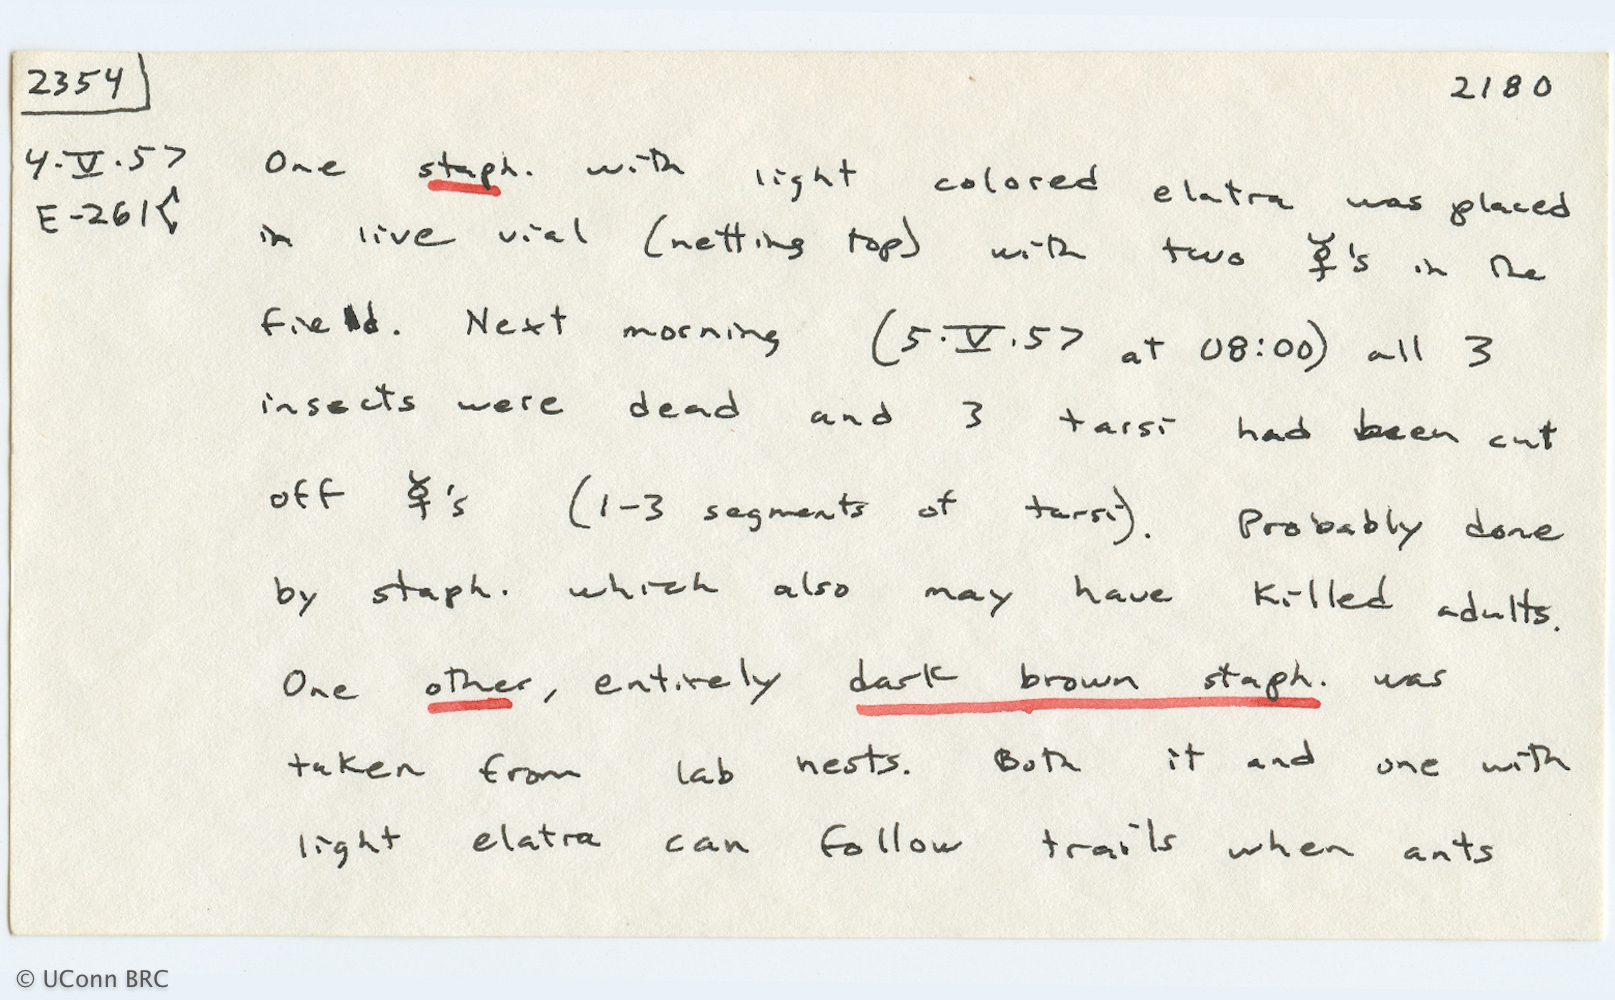 2354
2180
4.V.57 One staph. with light colored elatra was placed
E-261 in live vial (netting top) with two ☿'s in the
field. Next morning (5.V.57 at 08:00) all 3
insects were dead and 3 tarsi had been cut
off ☿'s (1-3 segments of tarsi). Probably done
by staph. which also may have killed adults.
One other, entirely dark brown staph. was
taken from lab nests. Both it and one with
light elatra can follow trails when ants
© UConn BRC